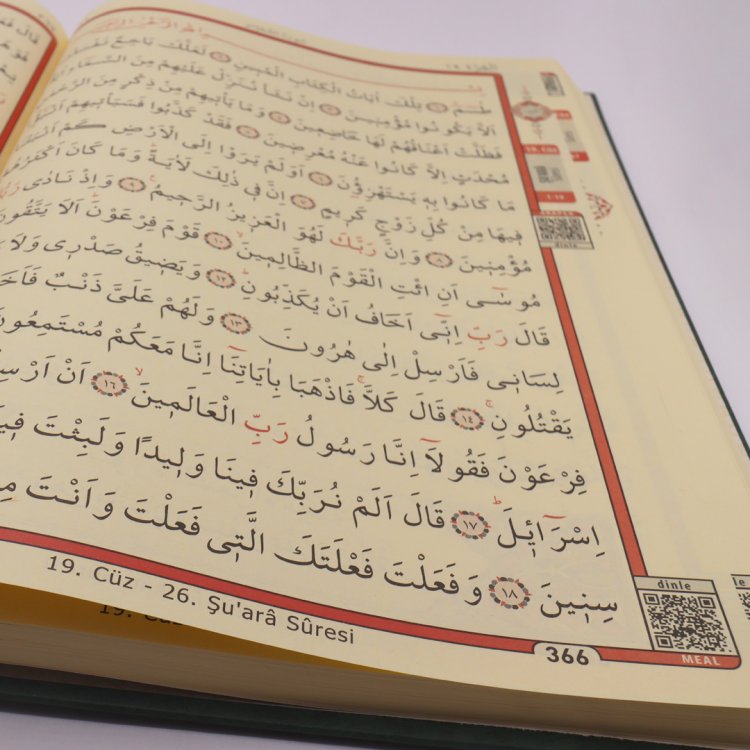 طٰسٓمٓ ﴿١﴾ تِلْكَ اٰيَاتُ الْكِتَابِ الْمُبٖينِ ﴿٢﴾ لَعَلَّكَ بَاخِعٌ
اَلَّا يَكُونُوا مُؤْمِنٖينَ ﴿٣﴾ اِنْ نَشَأْ نُنَزِّلْ عَلَيْهِمْ مِنَ السَّمَٓاءِ
فَظَلَّتْ اَعْنَاقُهُمْ لَهَا خَاضِعٖينَ ﴿٤﴾ وَمَا يَأْتٖيهِمْ مِنْ ذِكْرٍ مِنَ
مُحْدَثٍ اِلَّا كَانُوا عَنْهُ مُعْرِضٖينَ ﴿٥﴾ فَقَدْ كَذَّبُوا فَسَيَأْتٖيهِمْ
مَا كَانُوا بِهٖ يَسْتَهْزِؤُنَ ﴿٦﴾ اَوَلَمْ يَرَوْا اِلَى الْاَرْضِ كَمْ
فٖيهَا مِنْ كُلِّ زَوْجٍ كَرٖيمٍ ﴿٧﴾ اِنَّ فٖي ذٰلِكَ لَاٰيَةً وَمَا كَانَ
مُؤْمِنٖينَ ﴿٨﴾ وَاِنَّ رَبَّكَ لَهُوَ الْعَزٖيزُ الرَّحٖيمُ ﴿٩﴾ وَاِذْ نَادٰى
مُوسٰٓى اَنِ ائْتِ الْقَوْمَ الظَّالِمٖينَ ﴿١٠﴾ قَوْمَ فِرْعَوْنَ اَلَا يَتَّقُونَ
قَالَ رَبِّ اِنّٖٓي اَخَافُ اَنْ يُكَذِّبُونِ ﴿١٢﴾ وَيَضٖيقُ صَدْرٖي وَلَا
لِسَانٖي فَاَرْسِلْ اِلٰى هٰرُونَ ﴿١٣﴾ وَلَهُمْ عَلَيَّ ذَنْبٌ
يَقْتُلُونِ ﴿١٤﴾ قَالَ كَلَّا فَاذْهَبَا بِاٰيَاتِنَٓا اِنَّا مَعَكُمْ مُسْتَمِعُونَ
فِرْعَوْنَ فَقُولَٓا اِنَّا رَسُولُ رَبِّ الْعَالَمٖينَ ﴿١٦﴾ اَنْ
اِسْرَٓائٖلَ ﴿١٧﴾ قَالَ اَلَمْ نُرَبِّكَ فٖينَا وَلٖيدًا وَلَبِثْتَ
سِنٖينَ ﴿١٨﴾ وَفَعَلْتَ فَعْلَتَكَ الَّتٖي فَعَلْتَ وَاَنْتَ
19. Cüz - 26. Şu'arâ Sûresi
366
19. Cüz
dinle
dinle
MEAL